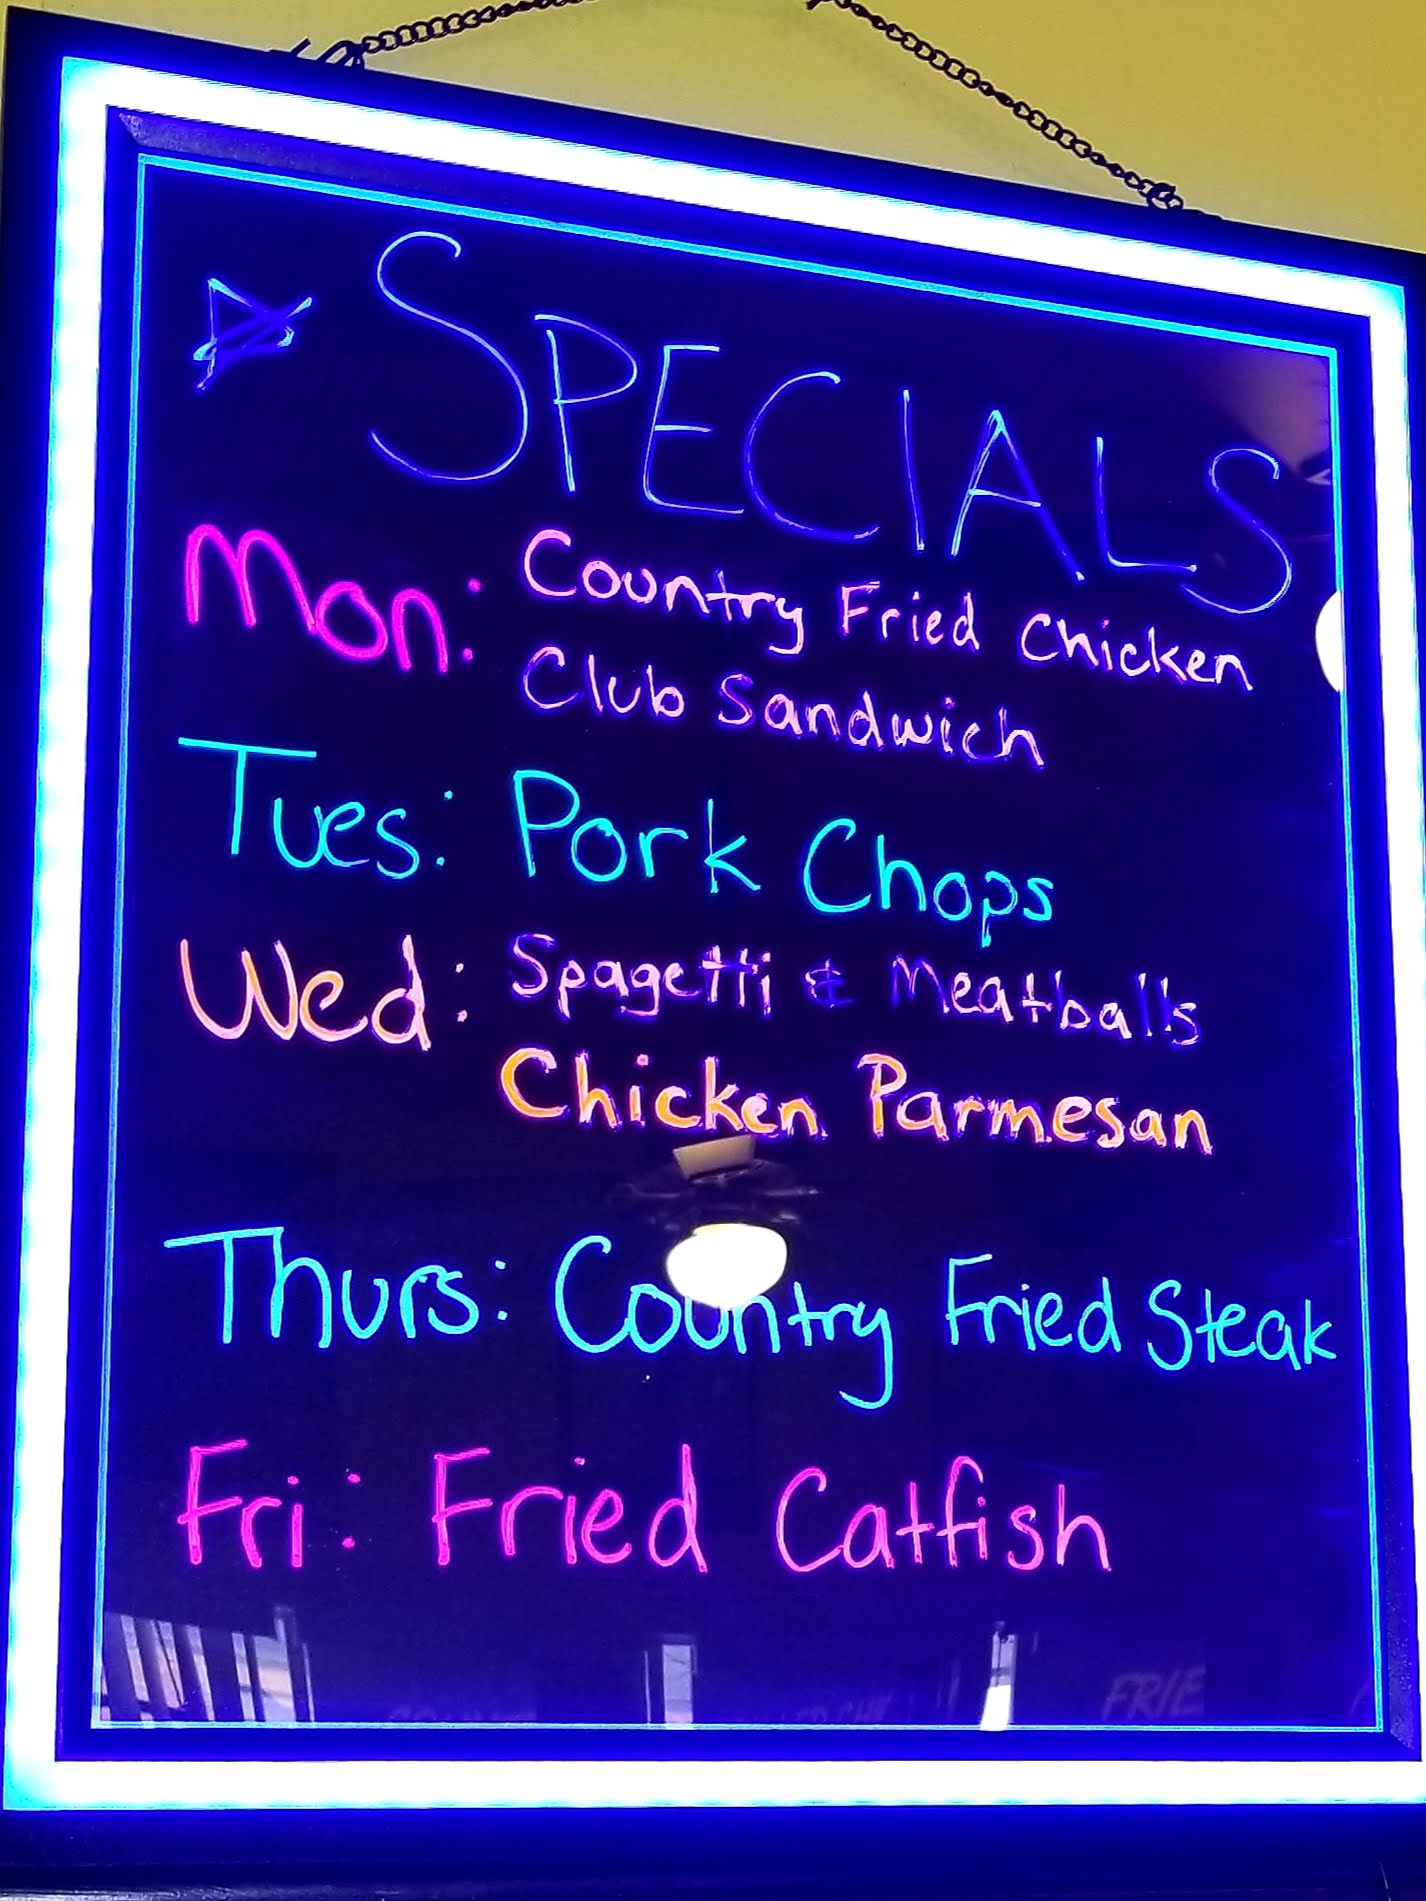 SPECIALS
Mon: Country Fried Chicken
Club Sandwich
Tues: Pork Chops
Wed: Spagetti & Meatballs
Chicken Parmesan
Thurs: Country Fried Steak
Fri: Fried Catfish
FRIE